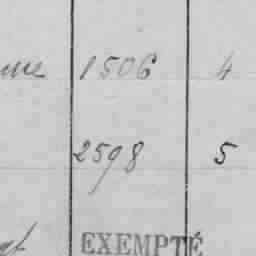 1506 4
2598 5
EXEMPTÉ